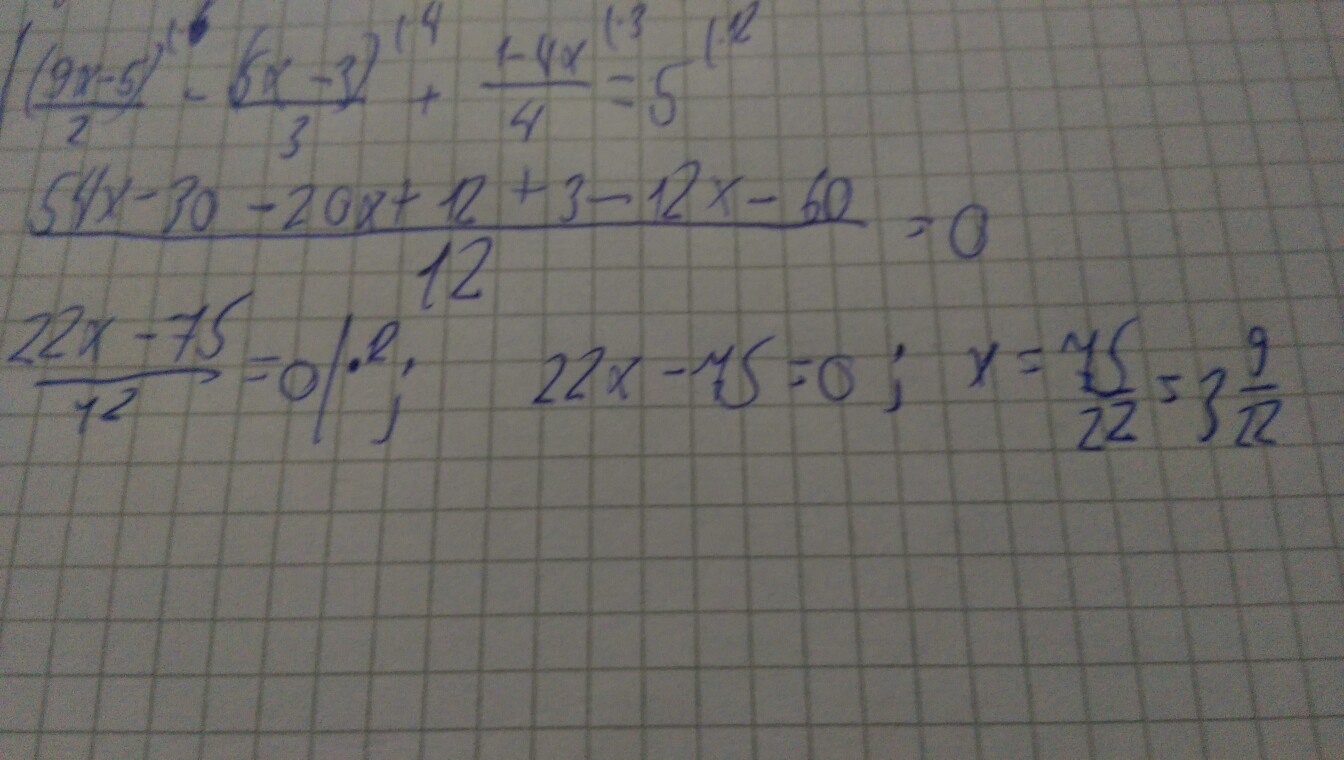 (9x-5)/2 (·6 - (5x-3)/3 (·4 + 1-4x/4 (·3 = 5 (·12
54x-30-20x+12+3-12x-60/12 = 0
22x-75/12 = 0/·12; 22x-75=0; x = 75/22 = 3 9/22